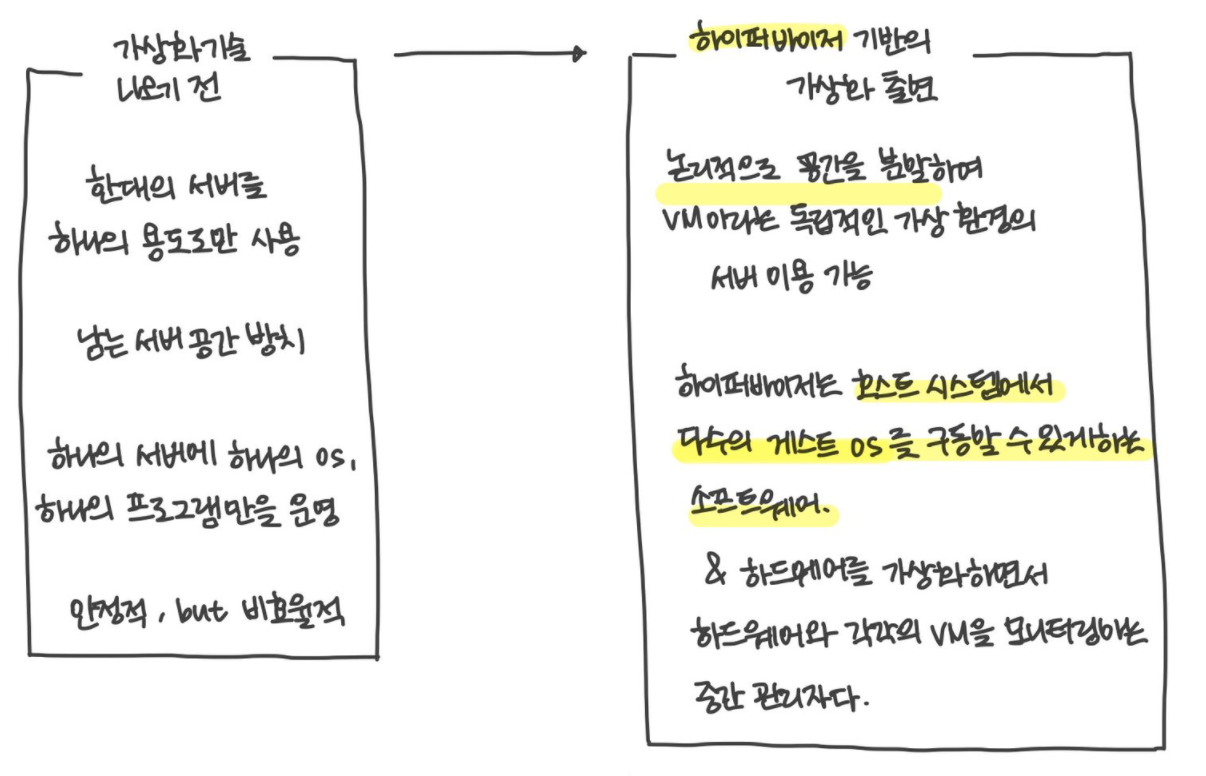 가상화기술
나오기 전
한대의 서버를
하나의 용도로만 사용
남는 서버 공간 방치
하나의 서버에 하나의 OS,
하나의 프로그램만을 운영
안정적, but 비효율적
하이퍼바이저 기반의
가상화 출현
논리적으로 공간을 분할하여
VM이라는 독립적인 가상 환경의
서버 이용 가능
하이퍼바이저는 호스트 시스템에서
다수의 게스트 OS를 구동할 수 있게하는
소프트웨어.
& 하드웨어를 가상화하면서
하드웨어와 각각의 VM을 모니터링하는
중간 관리자다.